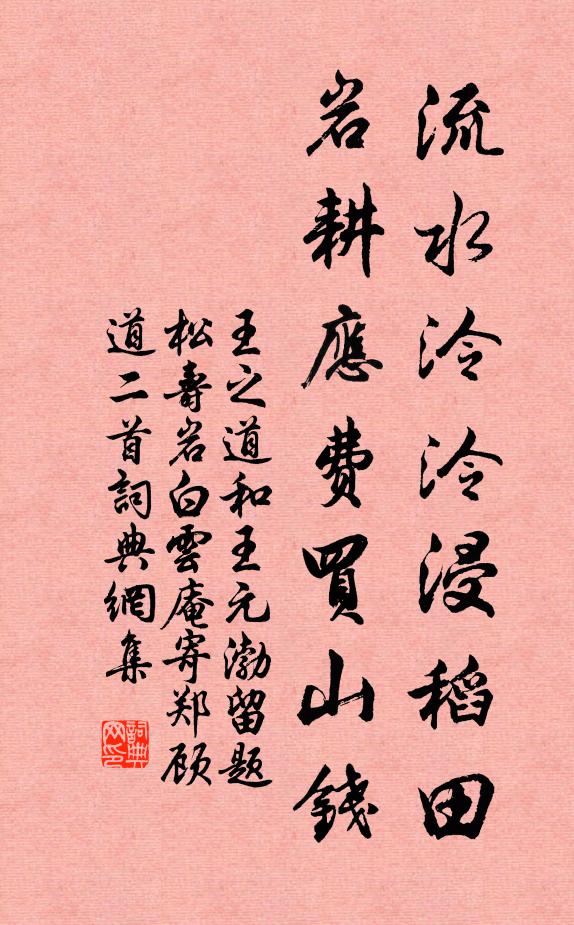 流水泠泠浸稻田
岩耕應费買山錢
王之道和王元渤留題
松壽岩白雲庵寄郑顾
道二首詞典網集
詞典
网印